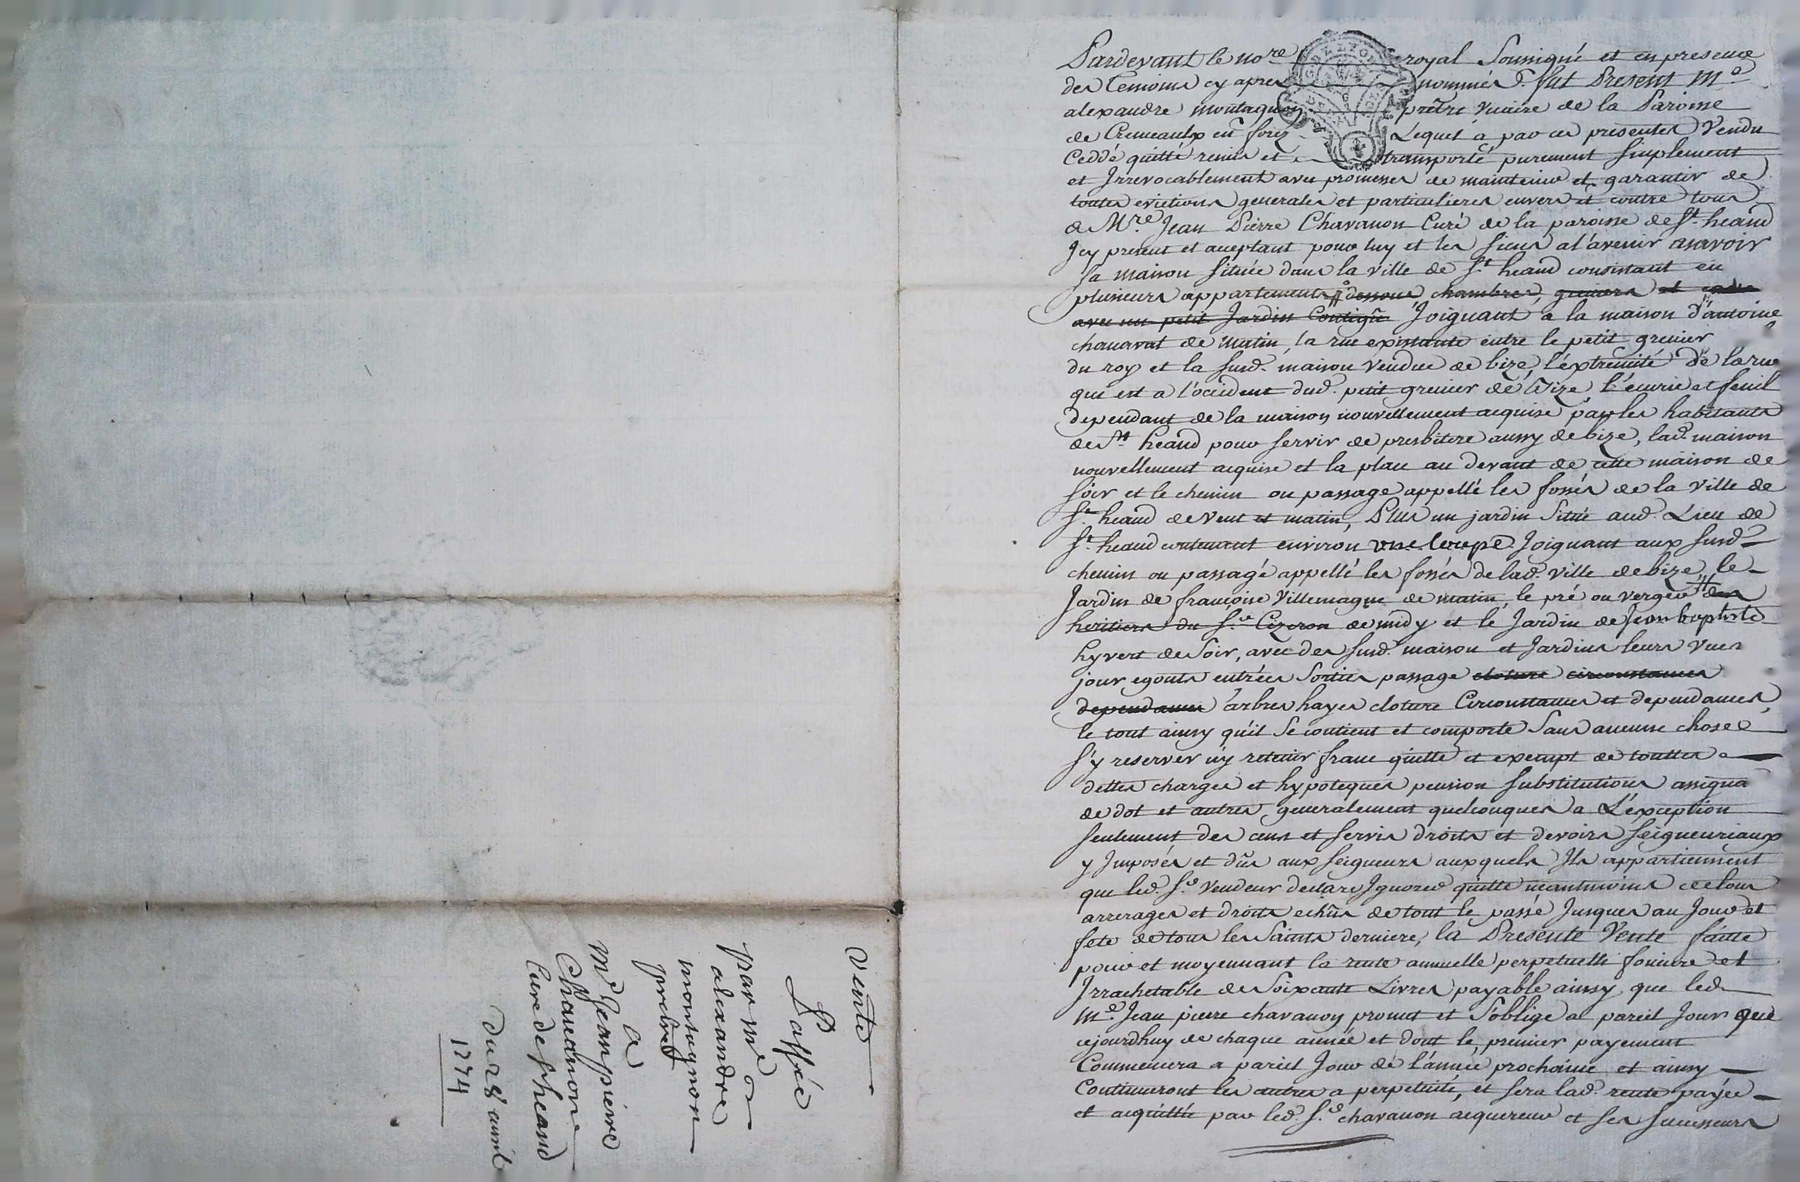 Pardevant le no.re royal Soussigné et en presence
des Temoins cy apres nommés fut Present M.e
alexandre montagnon prêtre vicaire de la Paroisse
de Cremeaulx en forez Lequel a par ces presentes Vendu
Ceddé quitté remis et transporté purement simplement
et Irrevocablement avec promesses de maintenir et garantir de
toutes evictions generales et particulieres envers et contre tous
a M.re Jean Pierre Chavanon Curé de la paroisse de S.t heand
Icy present et acceptant pour luy et les siens a l'avenir assavoir
sa maison située dans la ville de S.t heand consistant en
plusieurs appartements dessous chambres, greniers et
avec un petit Jardin Contigû Joignant a la maison d'antoine
chavanat de matin, la rue existante entre le petit grenier
du roy et la susd. maison vendue de bize, l'extremité de la rue
qui est a l'occident dud. petit grenier de bize, l'écurie et fenil
dependant de la maison nouvellement acquise par les habitants
de S.t heand pour servir de presbitere aussy de bize, lad. maison
nouvellement acquise et la place au devant de cette maison de
soir et le chemin ou passage appellé les fossés de la ville de
S.t heand de vent et matin, Plus un jardin Situé aud. Lieu de
S.t heand contenant environ une coupe Joignant aux susd.
chemin ou passage appellé les fossés de lad. ville de bize, le
Jardin de françoise Villemagne de matin, le pré ou verger des
heritiers du S.r Cizeron de midy et le Jardin de Jean baptiste
hyvert de Soir, avec des susd. maison et Jardins leurs vues
jour egouts entrées Sorties passage cloture circonstances
dependances arbres hayes cloture Circonstances et dependances,
le tout ainsy qu'il Se contient et comporte Sans aucune chose
s'y reserver n'y retenir franc quitte et exempt de touttes
dettes charges et hypoteques pension substitutions assignat
de dot et autres generalement quelconques a L'exception
seulement des cens et servis droits et devoirs seigneuriaux
y Imposés et dûs aux seigneurs auxquels Ils appartiennent
que led. S.r Vendeur declare Ignorer quitte neantmoins de tous
arrerages et droits echûs de tout le passé Jusques au Jour et
fete de tous les Saints derniere, la Presente Vente faitte
pour et moyennant la rente annuelle perpetuelle fonciere et
Irrachetable de Soixante Livres payable ainsy que led.
M.re Jean pierre chavanon promet et S'oblige a pareil Jour que
cejourdhuy de chaque année et dont le premier payement
Commencera a pareil Jour de l'année prochaine et ainsy
Continueront les autres a perpetuité, et sera lad. rente payée
et acquittée par led. S.r chavanon acquereur et ses successeurs
vente
Passée
par M.e
alexandre
montagnon
prêtre
a
M.e Jean pierre
Chavanon
Curé de S.t heand
Du 28 avril
1774